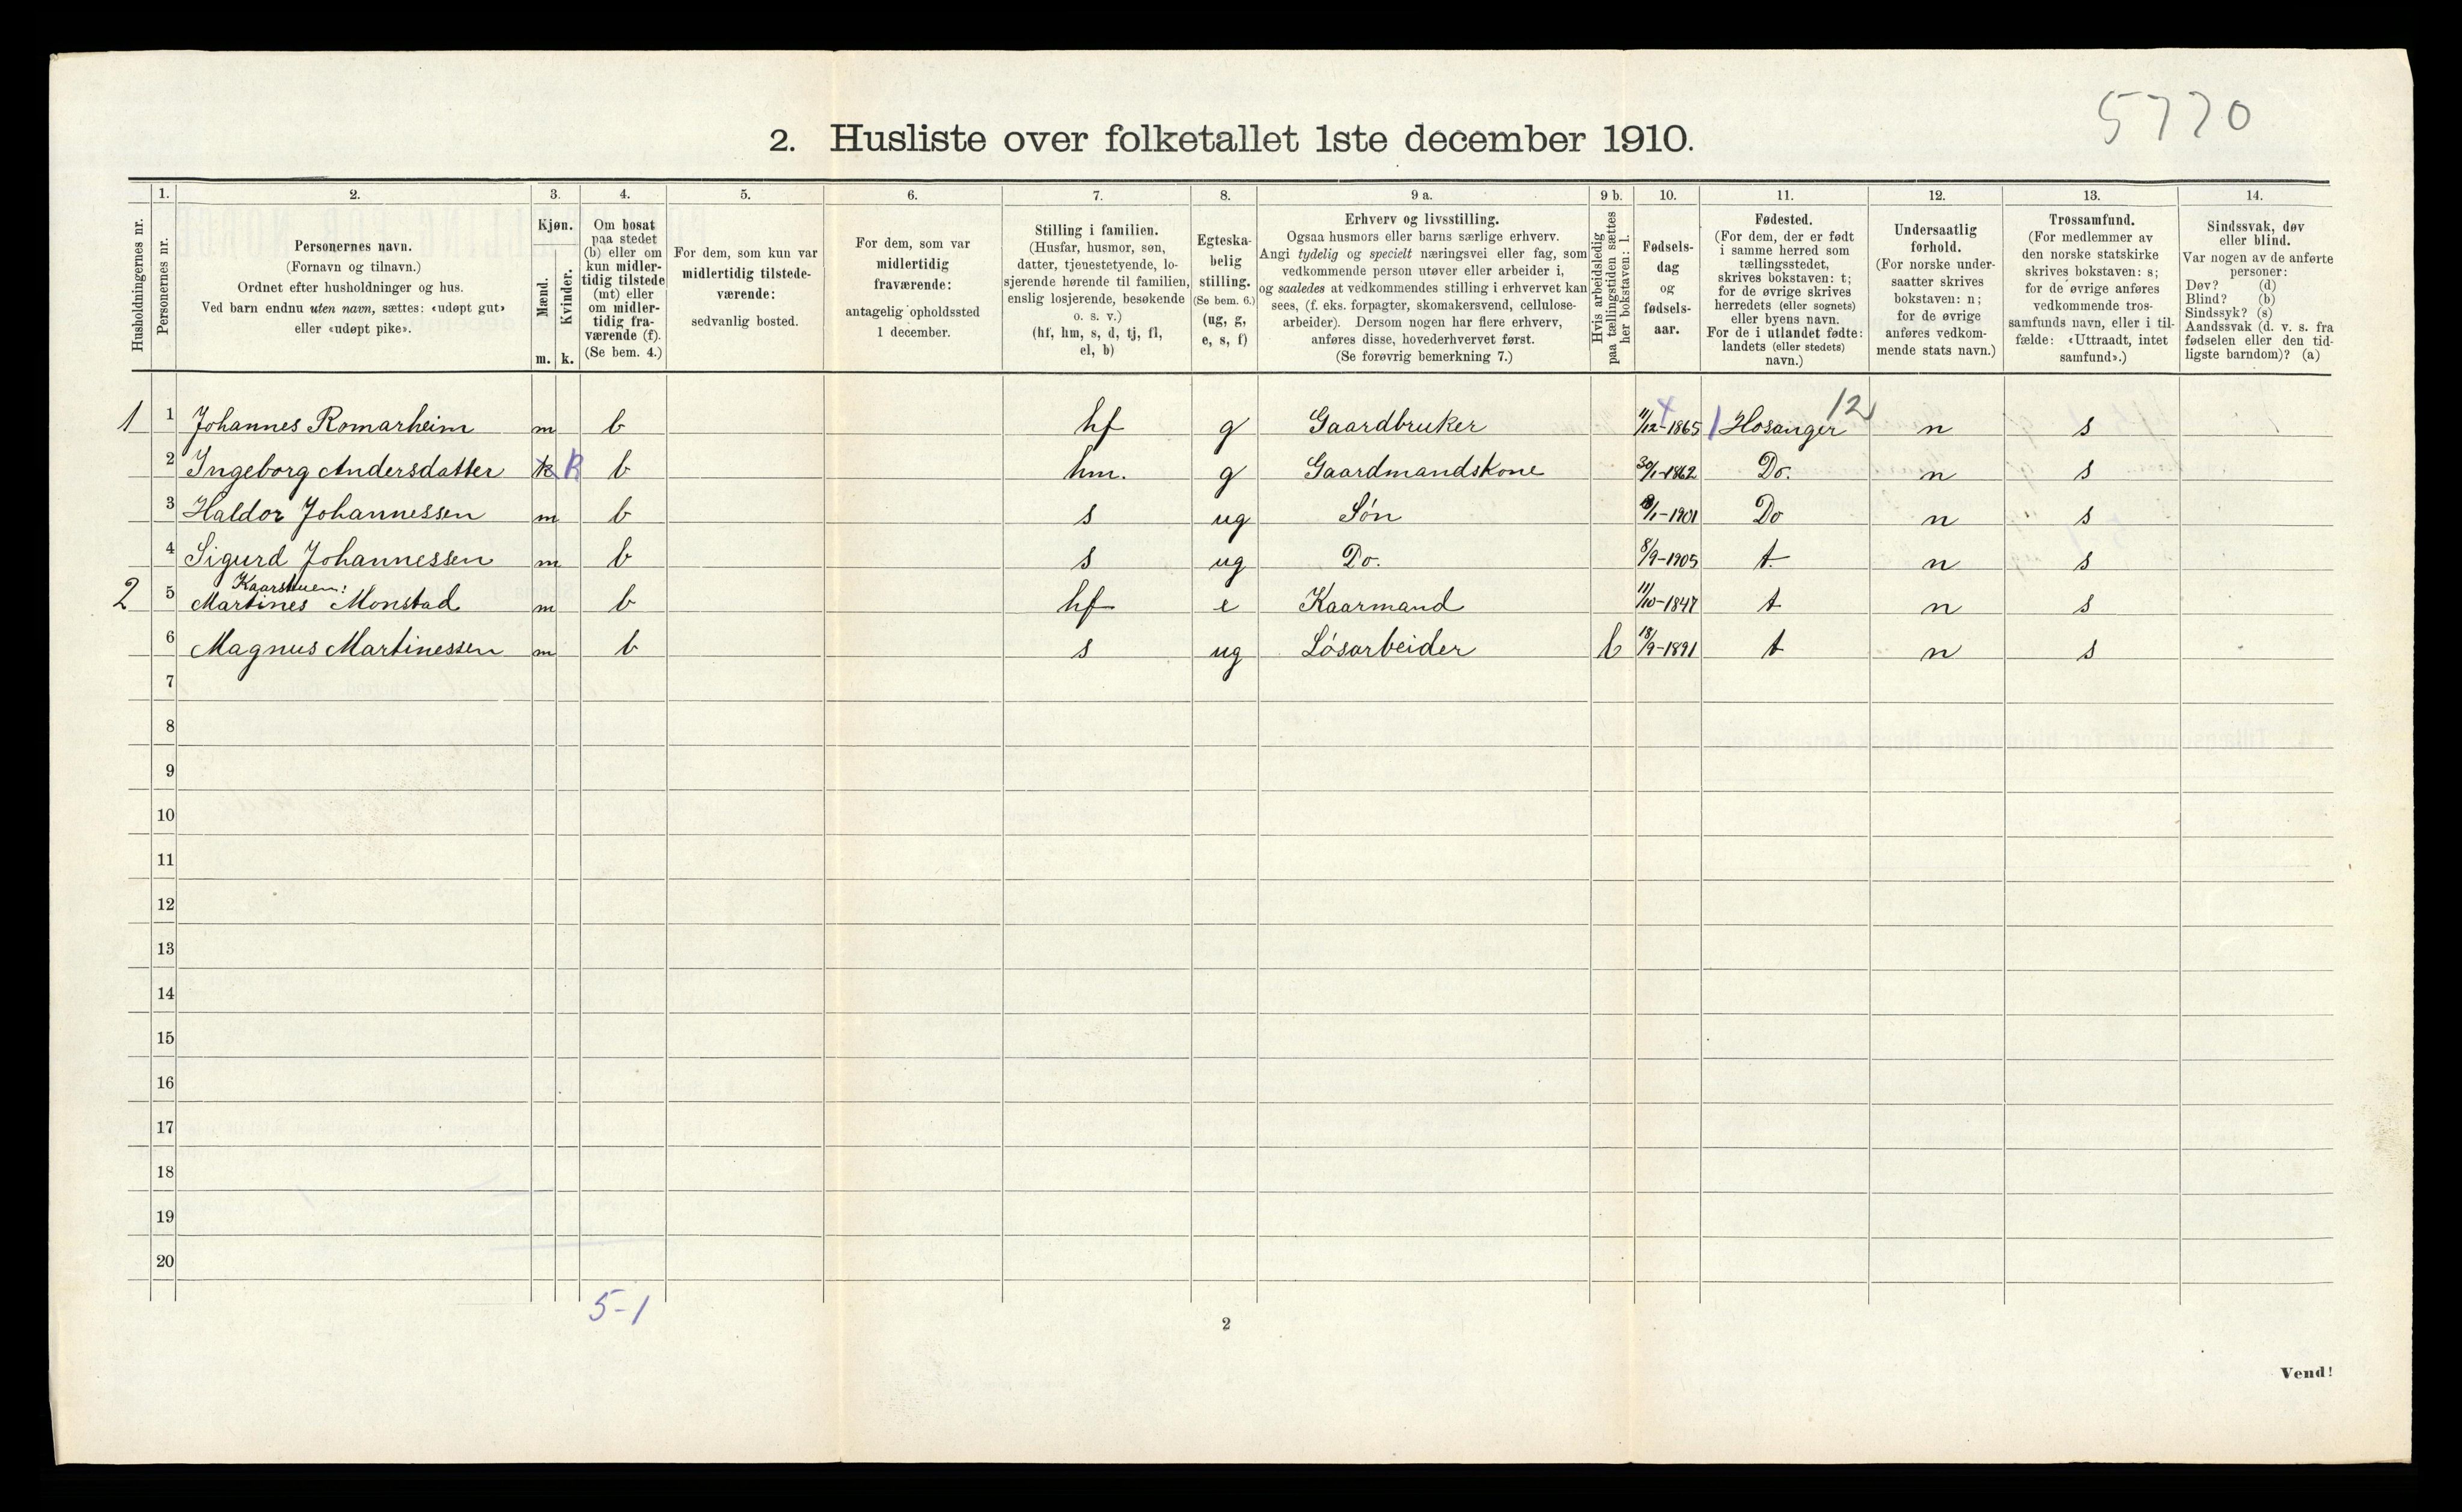 5770
2. Husliste over folketallet 1ste december 1910.
Husholdningernes nr.
1. Personernes nr.
2. Personernes navn. (Fornavn og tilnavn.) Ordnet efter husholdninger og hus. Ved barn endnu uten navn, sættes: «udøpt gut» eller «udøpt pike».
3. Kjøn. Mænd. m. Kvinder. k.
4. Om bosat paa stedet (b) eller om kun midler-tidig tilstede (mt) eller om midler-tidig fra-værende (f). (Se bem. 4.)
5. For dem, som kun var midlertidig tilstede-værende: sedvanlig bosted.
6. For dem, som var midlertidig fraværende: antagelig opholdssted 1 december.
7. Stilling i familien. (Husfar, husmor, søn, datter, tjenestetyende, lo-sjerende hørende til familien, enslig losjerende, besøkende o. s. v.) (hf, hm, s, d, tj, fl, el, b)
8. Egteska-belig stilling. (Se bem. 6.) (ug, g, e, s, f)
9 a. Erhverv og livsstilling. Ogsaa husmors eller barns særlige erhverv. Angi tydelig og specielt næringsvei eller fag, som vedkommende person utøver eller arbeider i, og saaledes at vedkommendes stilling i erhvervet kan sees, (f. eks. forpagter, skomakersvend, cellulose-arbeider). Dersom nogen har flere erhverv, anføres disse, hovederhvervet først. (Se forøvrig bemerkning 7.)
9 b. Hvis arbeidsledig paa tællingstiden sættes her bokstaven: l.
10. Fødsels-dag og fødsels-aar.
11. Fødested. (For dem, der er født i samme herred som tællingsstedet, skrives bokstaven: t; for de øvrige skrives herredets (eller sognets) eller byens navn. For de i utlandet fødte: landets (eller stedets) navn.)
12. Undersaatlig forhold. (For norske under-saatter skrives bokstaven: n; for de øvrige anføres vedkom-mende stats navn.)
13. Trossamfund. (For medlemmer av den norske statskirke skrives bokstaven: s; for de øvrige anføres vedkommende tros-samfunds navn, eller i til-fælde: «Uttraadt, intet samfund».)
14. Sindssvak, døv eller blind. Var nogen av de anførte personer: Døv? (d) Blind? (b) Sindssyk? (s) Aandssvak (d. v. s. fra fødselen eller den tid-ligste barndom)? (a)
1 1 Johannes Romarheim m b hf g Gaardbruker 11/12-1865 Hosanger 12 n s
2 Ingeborg Andersdatter k k b hm. g Gaardmandskone 30/1-1862 Do. n s
3 Haldor Johannessen m b s ug Søn /1-1901 Do n s
4 Sigurd Johannessen m b s ug Do. 8/9-1905 t. n s
Kaarstuen:
2 5 Martines Monstad m b hf e Kaarmand 11/10-1847 t n s
6 Magnus Martinessen m b s ug Løsarbeider l 18/9-1891 t n s
7
8
9
10
11
12
13
14
15
16
17
18
19
20
5-1
2
Vend!